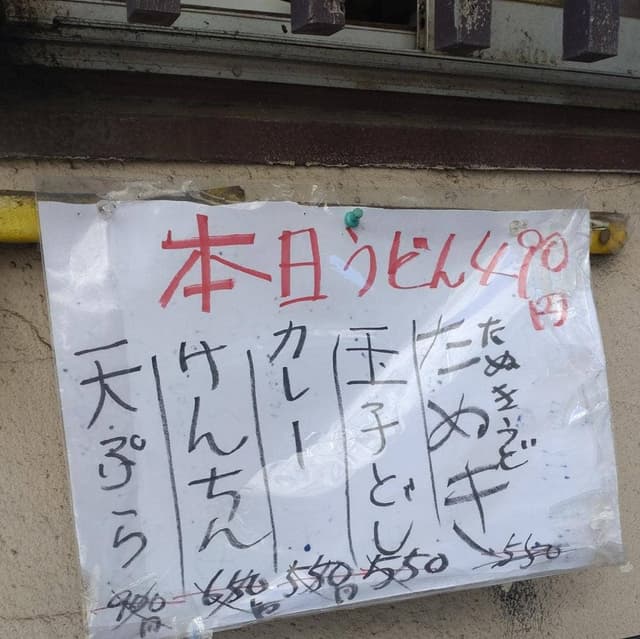 本日うどん490円
たぬきうどん
たぬき 550
玉子とじ 550
カレー 550円
けんちん 650円
天ぷら 900円